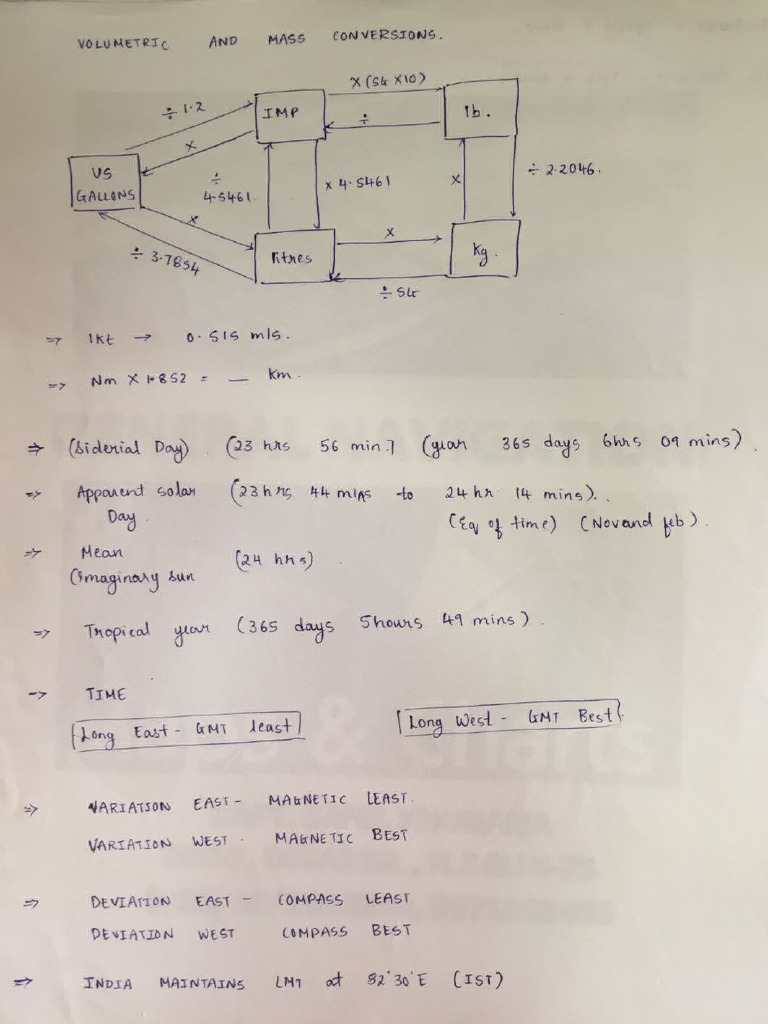 VOLUMETRIC AND MASS CONVERSIONS.
× (SG ×10)
÷ 1.2
IMP
÷
lb.
×
US
GALLONS
÷
4.5461
× 4.5461
×
÷ 2.2046.
×
litres
×
kg.
÷ 3.7854
÷ SG
⇒ 1kt → 0.515 m/s.
⇒ Nm × 1.852 = — km.
⇒ (Siderial Day) (23 hrs 56 min.] (year 365 days 6hrs 09 mins).
⇒ Apparent solar (23hrs 44 mins to 24 hr 14 mins)..
Day. (Eq of time) (Nov and feb).
⇒ Mean (24 hrs).
(imaginary sun
⇒ Tropical year (365 days 5hours 49 mins).
→ TIME
Long East - GMT least
Long West - GMT Best
⇒ VARIATION EAST - MAGNETIC LEAST.
VARIATION WEST - MAGNETIC BEST
⇒ DEVIATION EAST - COMPASS LEAST
DEVIATION WEST COMPASS BEST
⇒ INDIA MAINTAINS LMT at 82°30'E (IST)